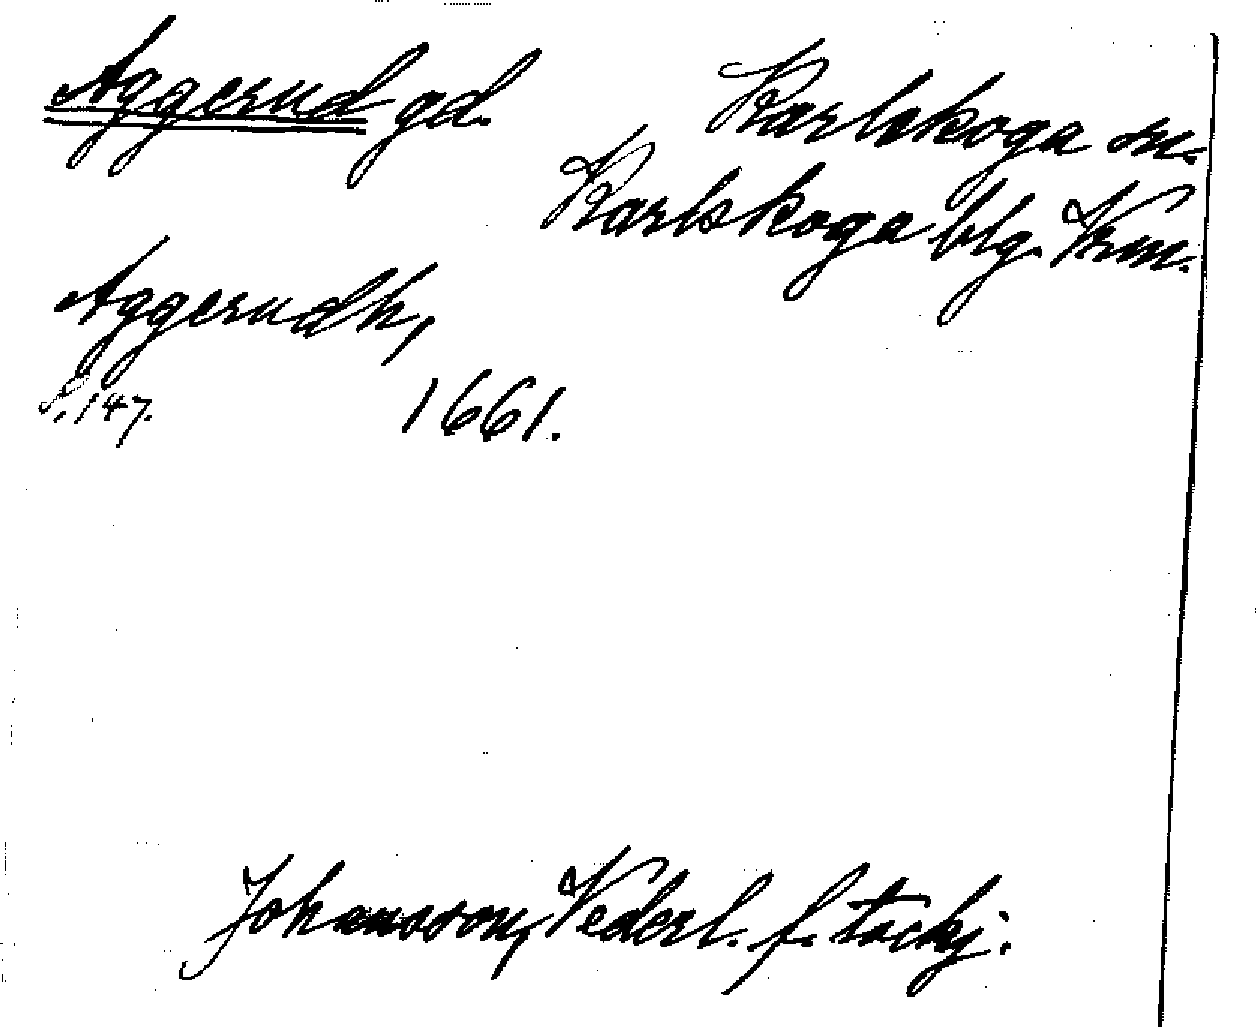 Aggerud gd.
Karlskoga sn.
Karlskoga blg. Vrm.
Aggerudh,
S. 147. 1661.
Johansson, Vederl. f. tackj.